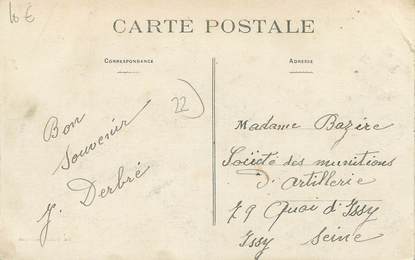 10 €
CARTE POSTALE
CORRESPONDANCE
ADRESSE
22
Bon
Souvenir
J. Derbré
Madame Bazére
Société des munitions
d'artillerie
79 Quai d'Issy
Issy Seine